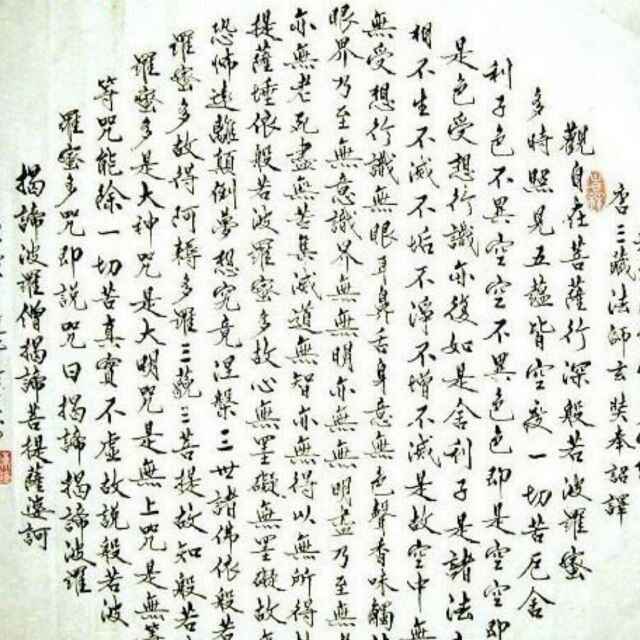 唐三藏法師玄奘奉詔譯
觀自在菩薩行深般若波羅蜜
多時照見五蘊皆空度一切苦厄舍
利子色不異空空不異色色即是空空即
是色受想行識亦復如是舍利子是諸法
相不生不滅不垢不淨不增不減是故空中無
無受想行識無眼耳鼻舌身意無色聲香味觸
眼界乃至無意識界無無明亦無無明盡乃至無
亦無老死盡無苦集滅道無智亦無得以無所得
提薩埵依般若波羅蜜多故心無罣礙無罣礙故
恐怖遠離顛倒夢想究竟涅槃三世諸佛依般若
羅蜜多故得阿耨多羅三藐三菩提故知般若
羅蜜多是大神咒是大明咒是無上咒是無
等咒能除一切苦真實不虛故說般若波
羅蜜多咒即說咒曰揭諦揭諦波羅
揭諦波羅僧揭諦菩提薩婆訶